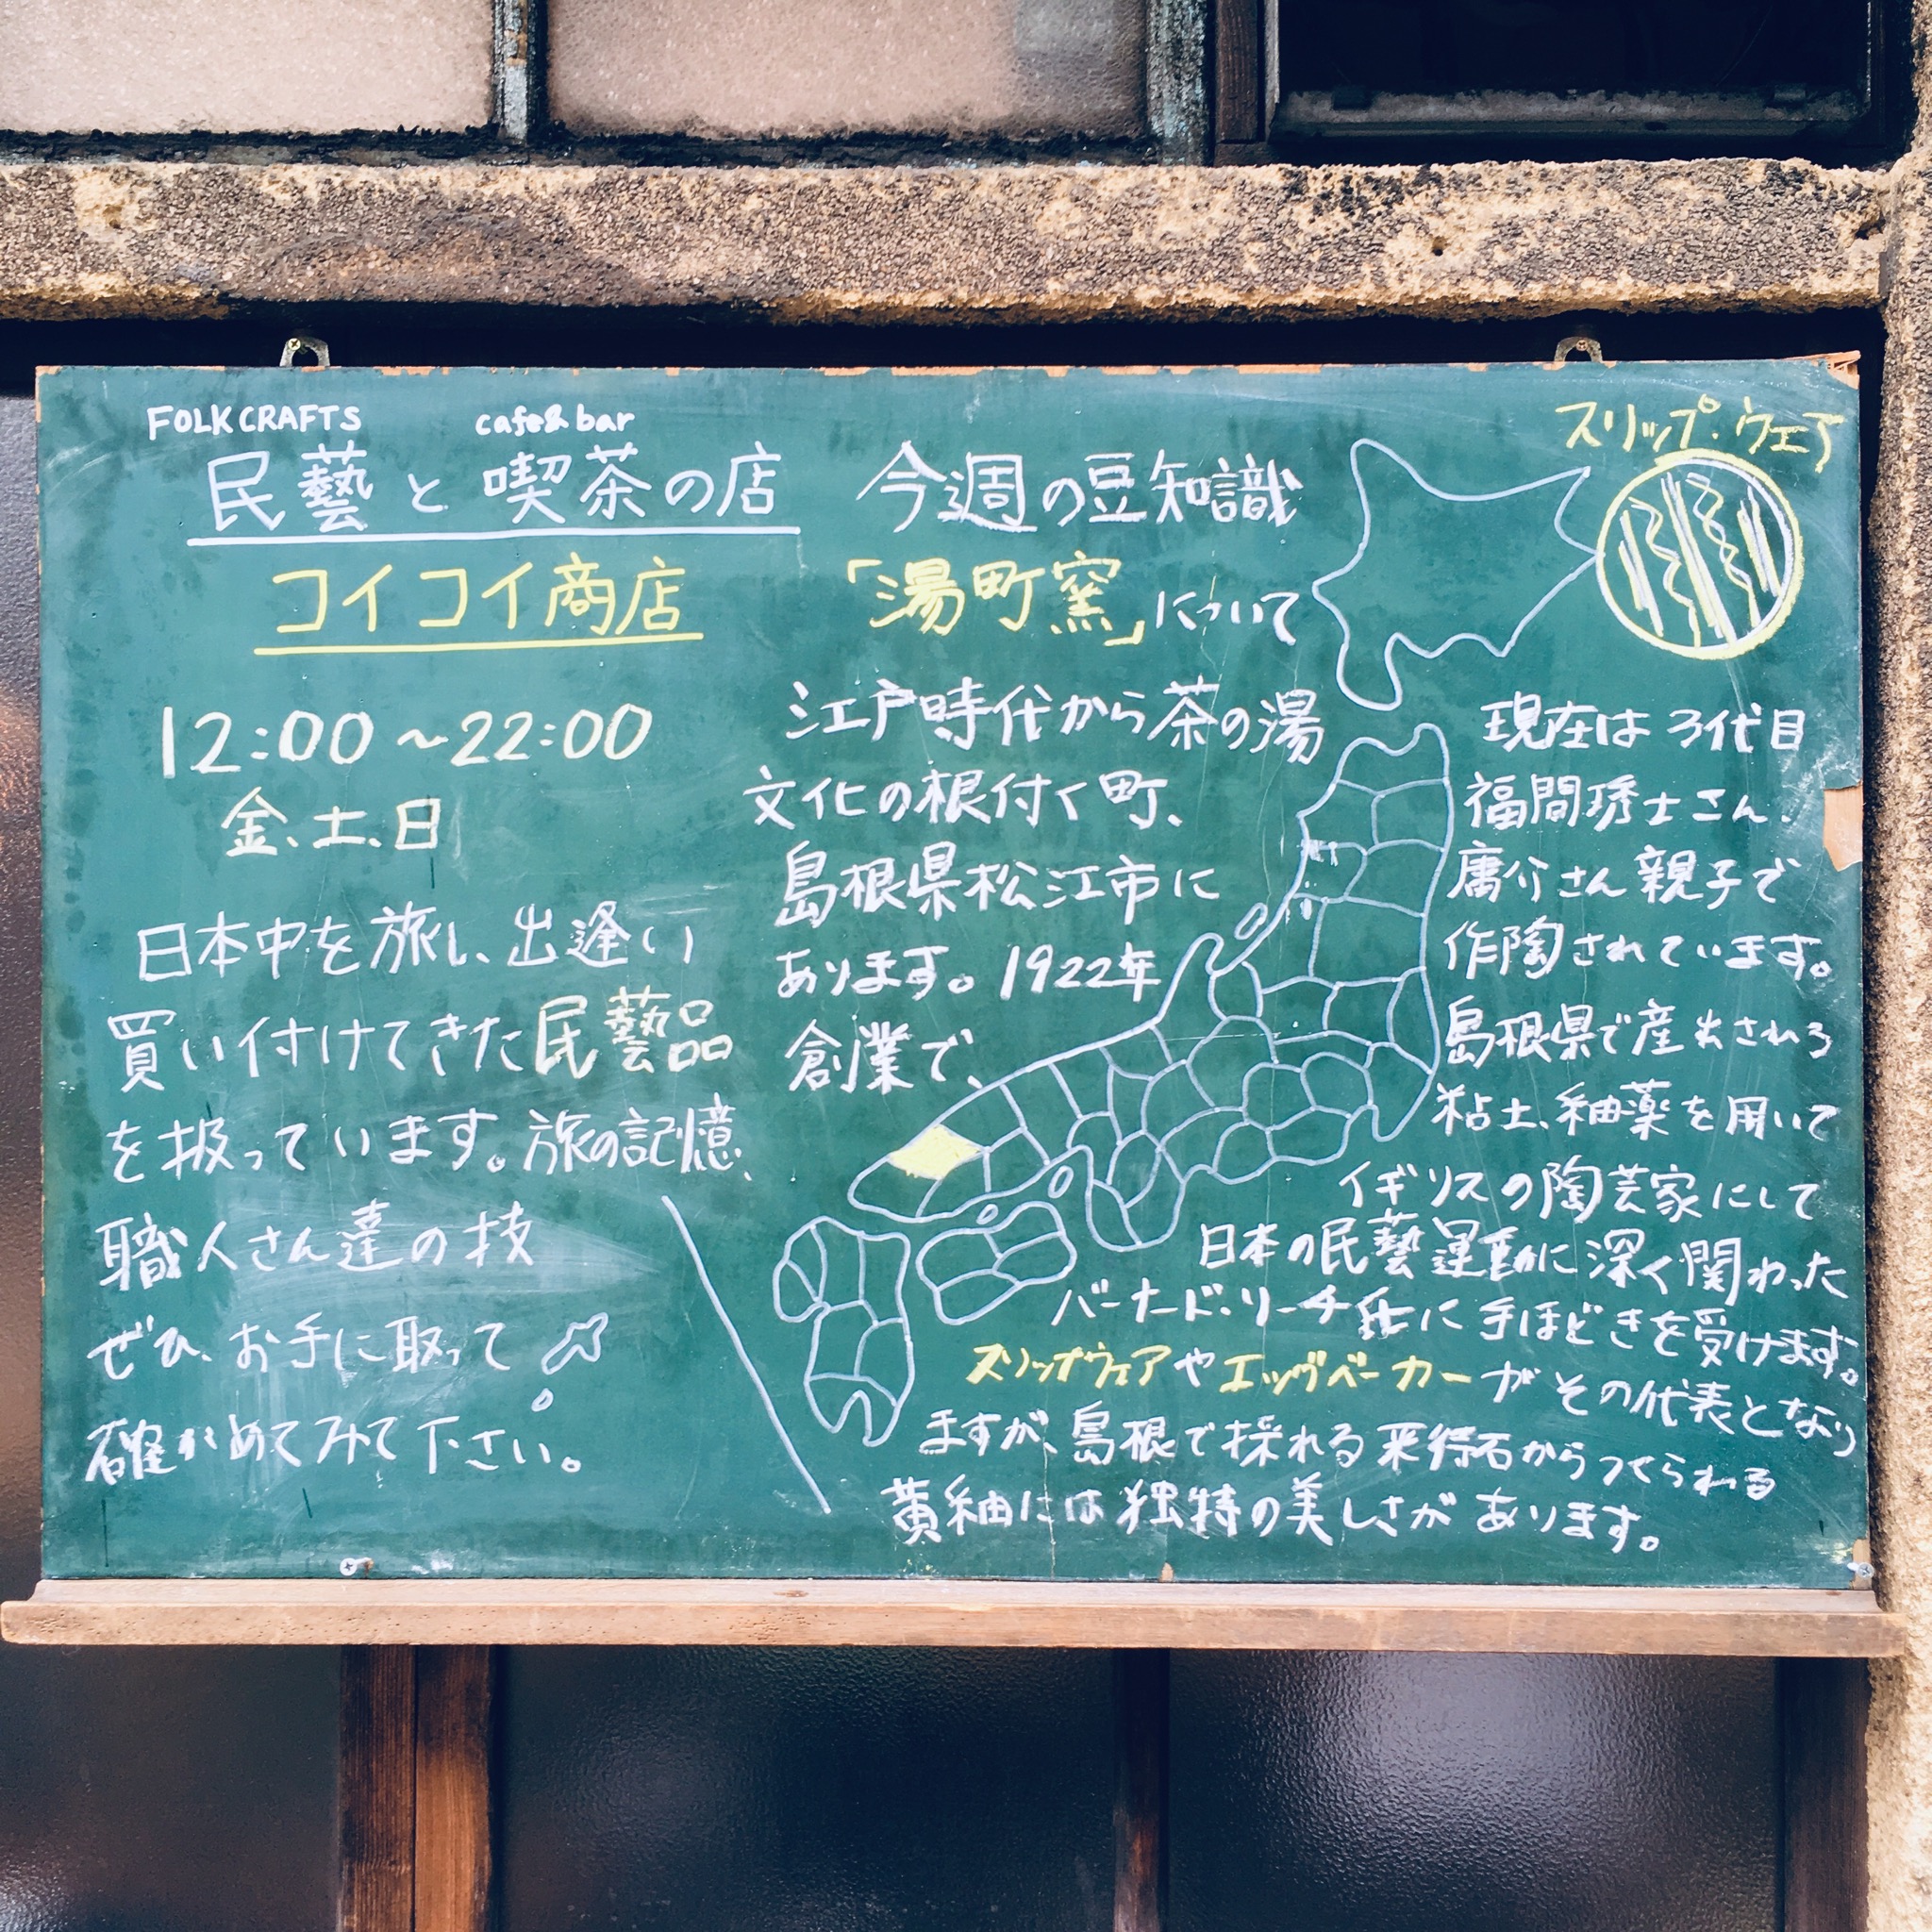 FOLKCRAFTS cafe&bar
民藝と喫茶の店
コイコイ商店
12:00~22:00
金、土、日
日本中を旅し、出逢い
買い付けてきた民藝品
を扱っています。旅の記憶、
職人さん達の技
ぜひ、お手に取って
確かめてみて下さい。
今週の豆知識
「湯町窯」について
江戸時代から茶の湯
文化の根付く町、
島根県松江市に
あります。1922年
創業で、
スリップ・ウェア
現在は3代目
福間琇士さん、
庸介さん親子で
作陶されています。
島根県で産出される
粘土、釉薬を用いて
イギリスの陶芸家にして
日本の民藝運動に深く関わった
バーナード・リーチ氏に手ほどきを受けます。
スリップウェアやエッグベーカーがその代表となり
ますが、島根で採れる来待石からつくられる
黄釉には独特の美しさがあります。